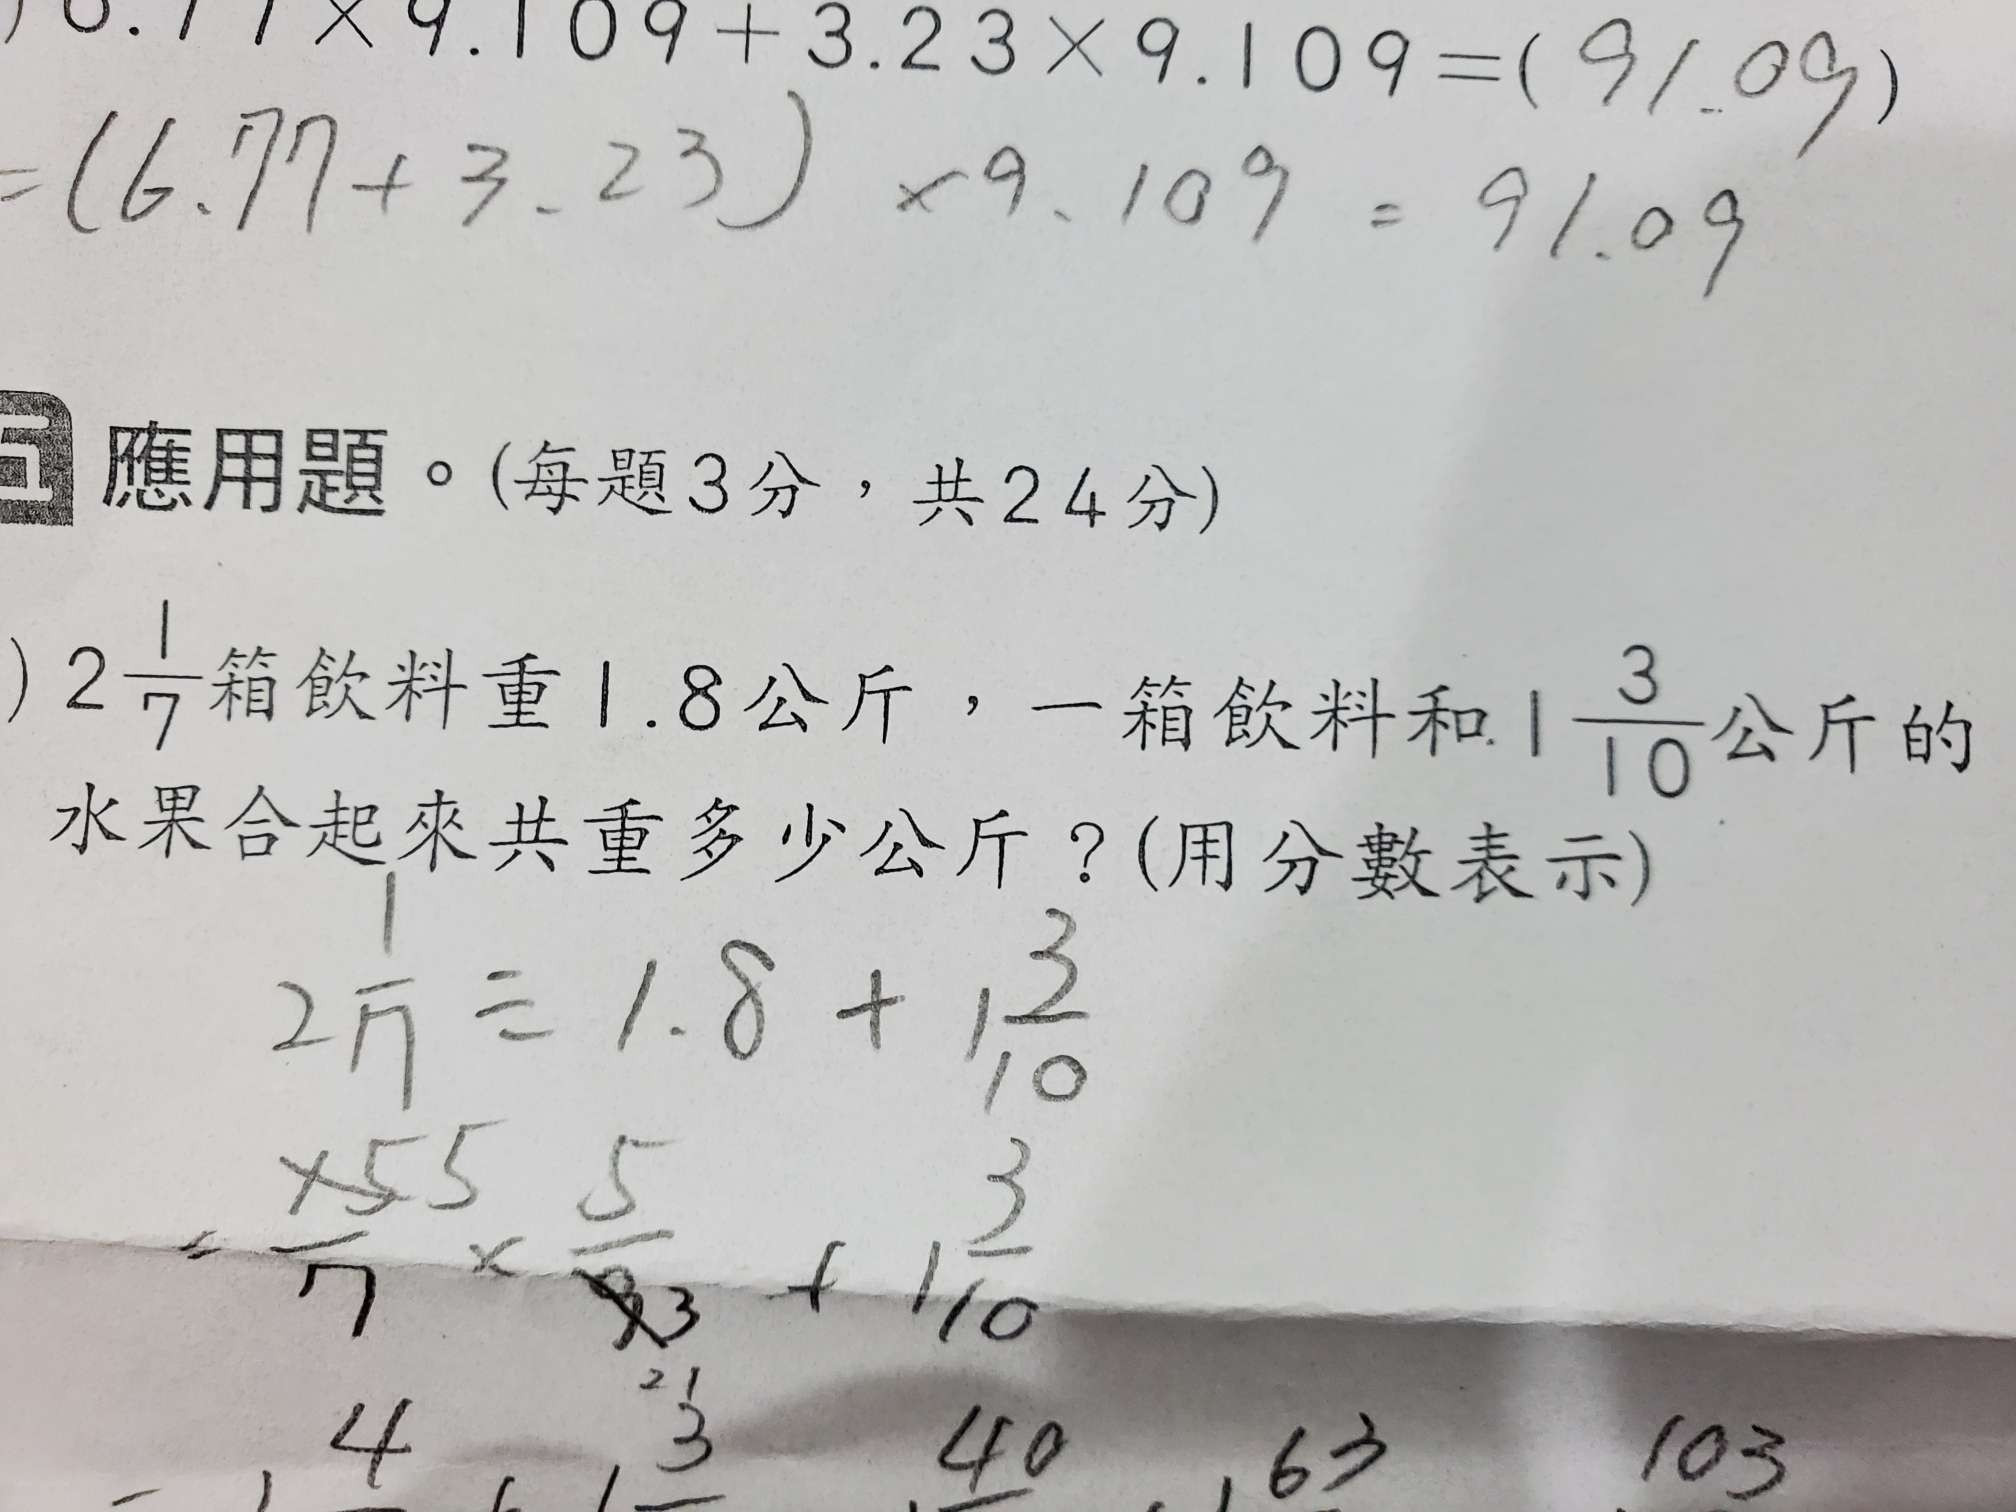 )6.77×9.109+3.23×9.109=(91.09)
=(6.77+3.23)×9.109=91.09
五 應用題。(每題3分，共24分)
)2 1/7箱飲料重1.8公斤，一箱飲料和1 3/10公斤的
水果合起來共重多少公斤？(用分數表示)
2 1/7 ÷ 1.8 + 1 3/10
= 5/7 × 5/3 + 1 3/10
4 3 40 63 103